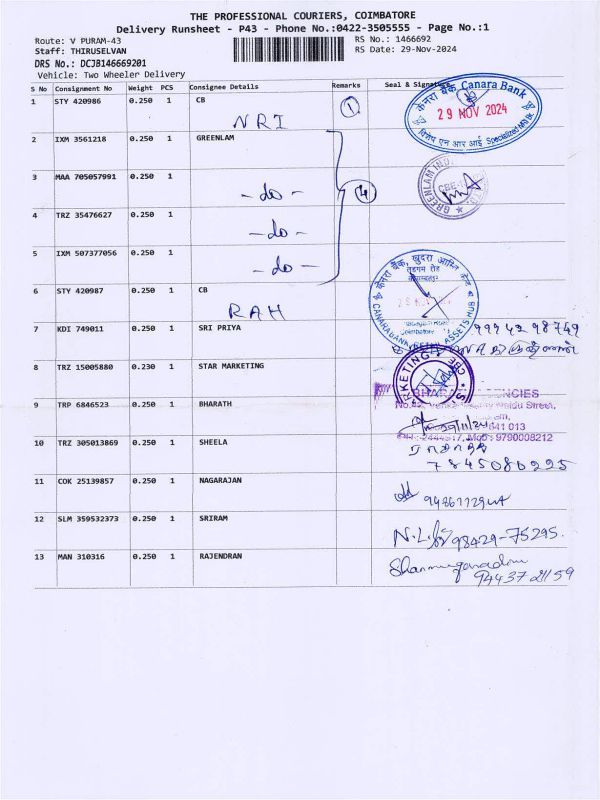 THE PROFESSIONAL COURIERS, COIMBATORE
Delivery Runsheet - P43 - Phone No.:0422-3505555 - Page No.:1
Route: V PURAM-43
RS No.: 1466692
Staff: THIRUSELVAN
RS Date: 29-Nov-2024
DRS No.: DCJB146669201
Vehicle: Two Wheeler Delivery
S No Consignment No Weight PCS Consignee Details Remarks Seal & Signature
1 STY 420986 0.250 1 CB
NRI
1
केनरा बैंक Canara Bank
29 NOV 2024
Specialized
2 IXM 3561218 0.250 1 GREENLAM
3 MAA 705057991 0.250 1
- do -
4
GREENLAM
CBE
4 TRZ 35476627 0.250 1
- do -
5 IXM 507377056 0.250 1
- do -
6 STY 420987 0.250 1 CB
RAH
केनरा बैंक, खुदरा आस्ति
CANARA BANK, RETAIL ASSETS HUB
7 KDI 749011 0.250 1 SRI PRIYA
8 TRZ 15005880 0.230 1 STAR MARKETING
MARKETING
CBE
9 TRP 6846523 0.250 1 BHARATH
641 013
9790008212
10 TRZ 305013869 0.250 1 SHEELA
7845080225
11 COK 25139857 0.250 1 NAGARAJAN
12 SLM 359532373 0.250 1 SRIRAM
98429-75295.
13 MAN 310316 0.250 1 RAJENDRAN